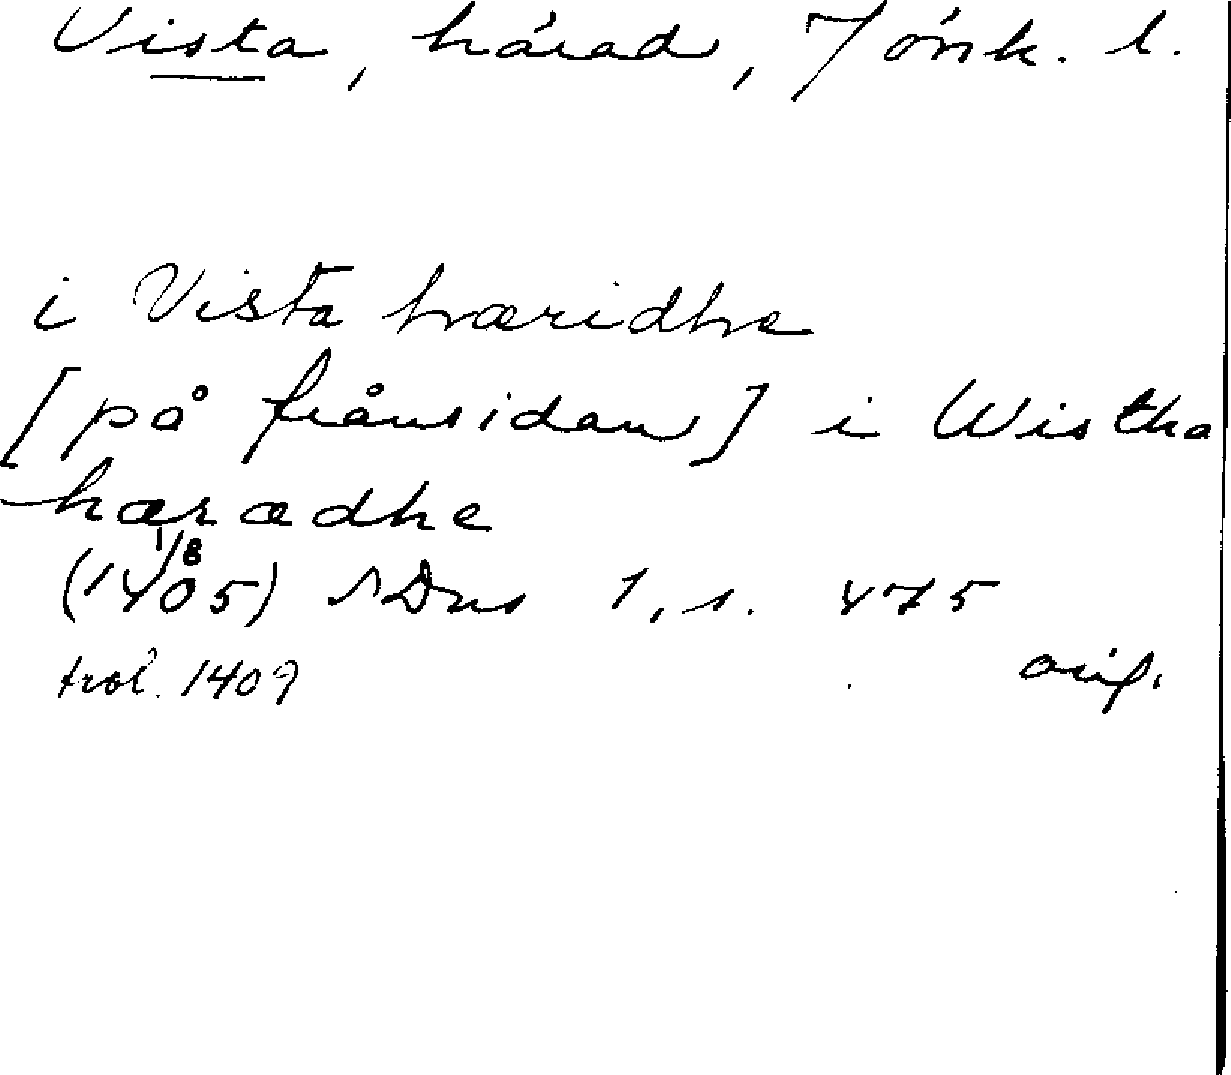 Vista, härad, Jönk. l.
i Vista hæridhe
[på frånsidan] i Wistha
hærædhe
(1/8 1405) SDns 1, s. 475
trol. 1409 orig.